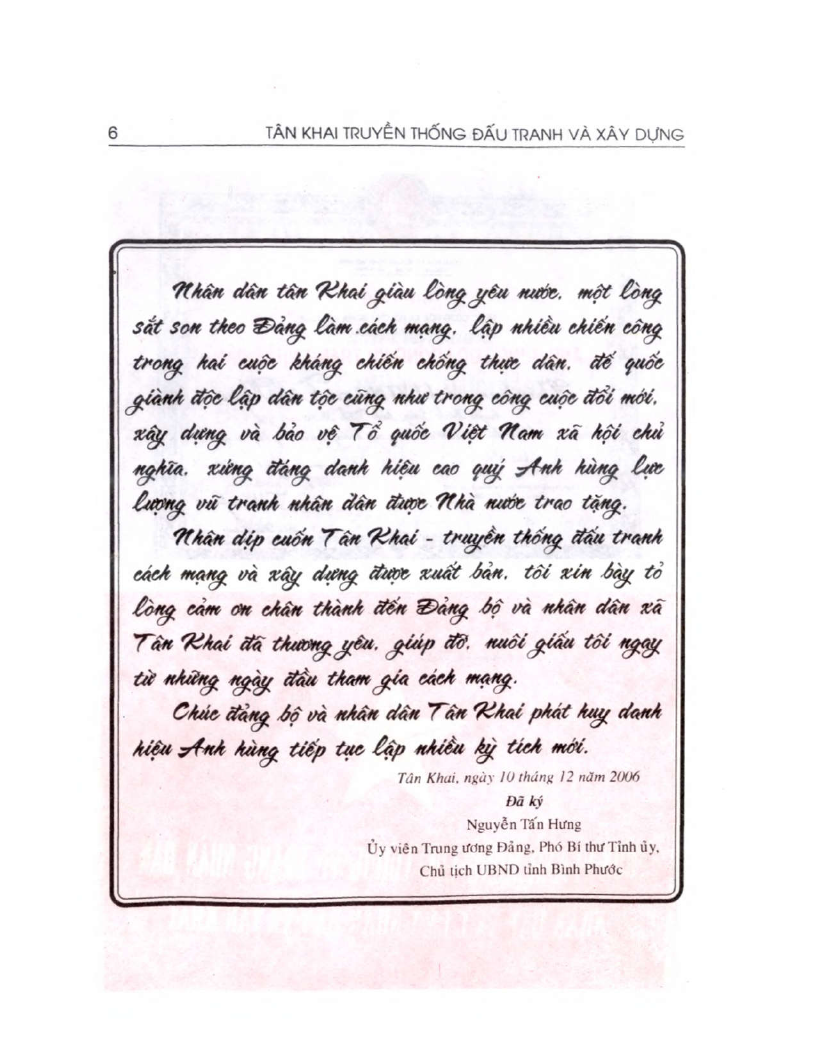 6 TÂN KHAI TRUYỀN THỐNG ĐẤU TRANH VÀ XÂY DỰNG
Nhân dân tân Khai giàu lòng yêu nước, một lòng
sắt son theo Đảng làm cách mạng, lập nhiều chiến công
trong hai cuộc kháng chiến chống thực dân, đế quốc
giành độc lập dân tộc cũng như trong công cuộc đổi mới,
xây dựng và bảo vệ Tổ quốc Việt Nam xã hội chủ
nghĩa, xứng đáng danh hiệu cao quý Anh hùng lực
lượng vũ tranh nhân dân được Nhà nước trao tặng.
Nhân dịp cuốn Tân Khai - truyền thống đấu tranh
cách mạng và xây dựng được xuất bản, tôi xin bày tỏ
lòng cảm ơn chân thành đến Đảng bộ và nhân dân xã
Tân Khai đã thương yêu, giúp đỡ, nuôi giấu tôi ngay
từ những ngày đầu tham gia cách mạng.
Chúc đảng bộ và nhân dân Tân Khai phát huy danh
hiệu Anh hùng tiếp tục lập nhiều kỳ tích mới.
Tân Khai, ngày 10 tháng 12 năm 2006
Đã ký
Nguyễn Tấn Hưng
Ủy viên Trung ương Đảng, Phó Bí thư Tỉnh ủy,
Chủ tịch UBND tỉnh Bình Phước